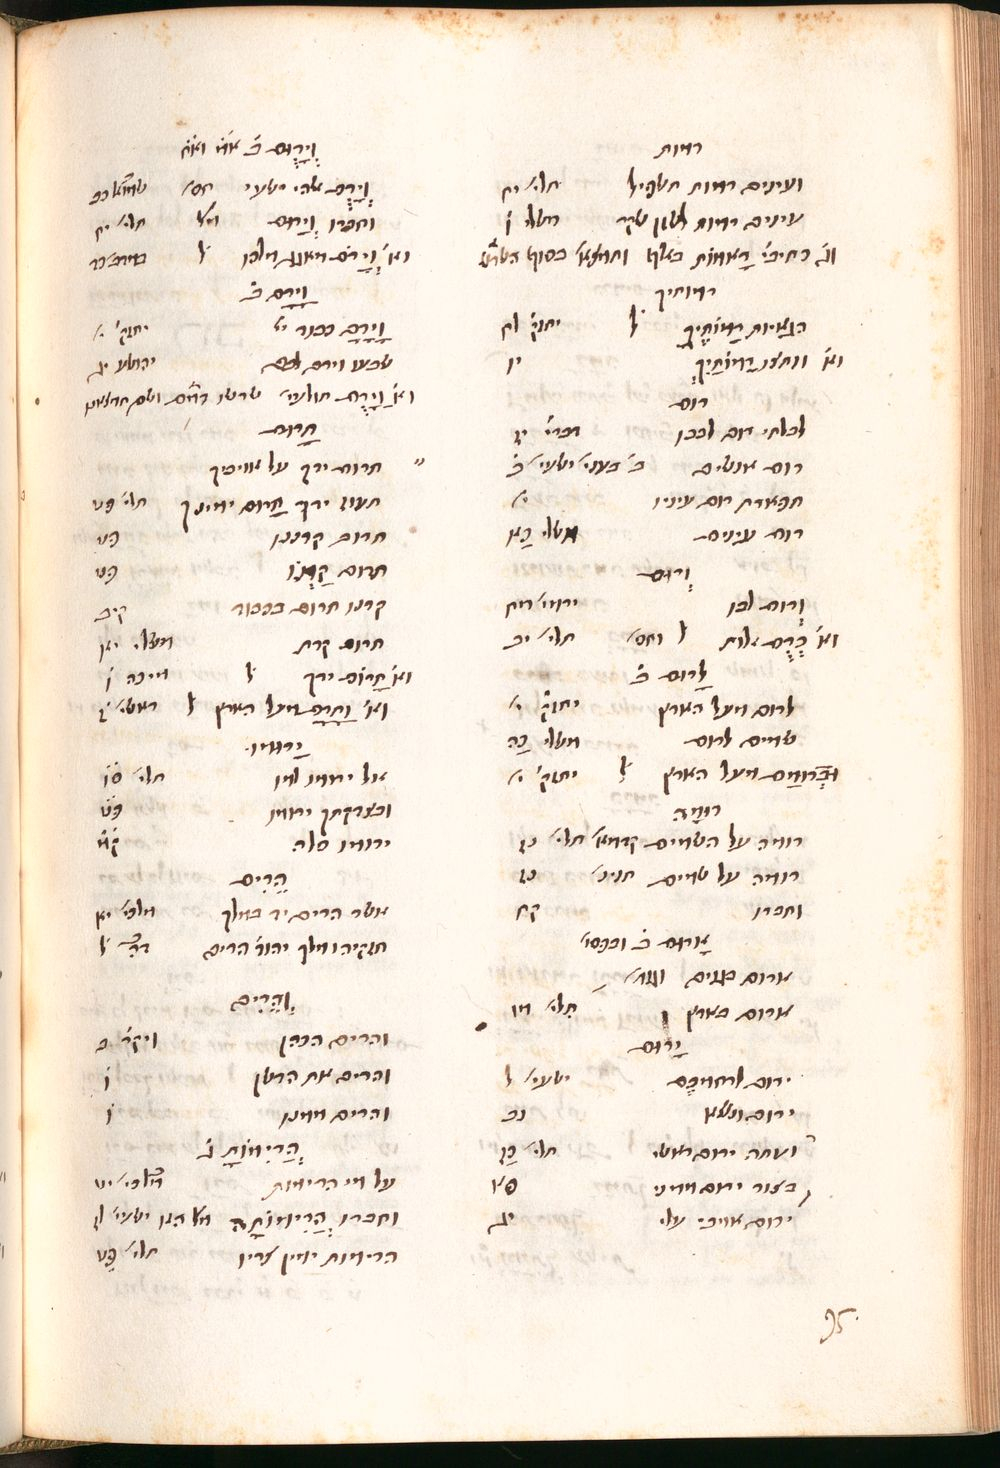 רמות
ועינים רמות תשפיל תלי׳ יח
עינים רמות לשון שקר משלי ו
וג׳ כתיבי׳ רָאמוֹת באלף ותמצא׳ בסוף השרש
רמותיך
הגאיות רָמוּתֶיךָ ל׳ יחזק׳ לח
וא׳ וחצו רָמוֹתַיִךְ יו
רום
לבלתי רום לבבו דברי׳ יז
רום אנשים ב׳ בעני׳ ישעי׳ ב׳
תפארת רום עיניו י׳
רום עינים משלי כא
וְרוּם
וְרום לבו ירמי׳ מח
וא׳ כְּרֻם זלות ל׳ וחס׳ תלי׳ יב
לָרוּם ב׳
לרום מעל הארץ יחזק׳ י׳
שמים לרום משלי כה
וּבְרוּמָם מעל הארץ ל׳ יחזק׳ י׳
רוּמָה
רומה על השמים קדמא׳ תלי׳ נז
רומה על שמים תנינ׳ נז
וחברו קח
אָרוּם ב׳ ובפסו׳
ארום בגוים
ארום בארץ תלי׳ מו
יָרוּם
ירום לרחמכֶם ישעי׳ ל
ירום ונשא נב
ועתה ירום ראשי תלי׳ כז
בצור ירום ממני סא
ירום אויבי עלי יג
וְיָרֻם ב׳
וְיָרֻם אלהי ישעי חס׳ שמואל כב
וחברו וְיָרוּם מל׳ תלי׳ יח
וא׳ וְיָרֹם מאגג מלכו ל׳ במדבר כד
וַיָּרָם ב׳
וַיָּרָם כבוד יי׳ יחזק׳ י׳
וא׳ וַיָּרֻם תולעי׳
תָּרוּם
תרום ידך על צוריך
תעוז ידך תָּרוּם ימינך תלי׳ פט
תרום קרננו פט
תרום קַרְנוֹ פט
קרנו תרום בכבוד קיב
תרום קרת משלי יא
וא׳ תָּרֹום ידך ל׳ מיכה ו
וא׳ וַתָּרָם מעל הארץ ל׳ ראשי׳ ז
יָרוּמוּ
אל ירומו למו תלי׳ סו
ובצדקתך ירומו פט
ירומו סלה קמ
הֵרִים
אשר הרים יד במלך מלכי׳ יא
חזקיהו מלך יהודה הרים דה׳ ל
וְהֵרִים
והרים הכהן ויקר׳ ב
והרים את הדשן ו
והרים ממנו ו
הֲרִימוֹתָ ב׳
על מי הרימות מלכי׳ יט
וחברו הֲרִימוֹתָה קול ישעי׳ לז
הרימות ימין צריו תלי׳ פט
95